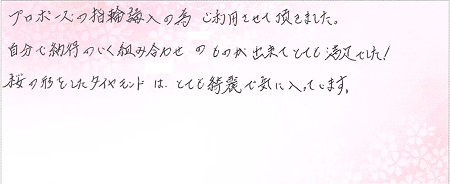 プロポーズの指輪購入の為 ご利用させて頂きました。
自分で納得のいく組み合わせ のものが出来てとても満足でした!
桜の形をしたダイヤモンド は、とても綺麗で気に入っています。